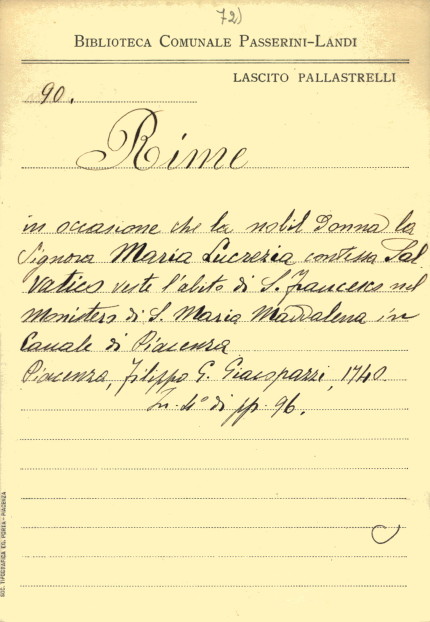 72)
BIBLIOTECA COMUNALE PASSERINI-LANDI
LASCITO PALLASTRELLI
90.
Rime
in occasione che la nobil Donna la
Signora Maria Lucrezia contessa Sal
Vatico veste l'abito di S. Francesco nel
Monistero di S. Maria Maddalena in
Canale di Piacenza
Piacenza, Filippo G. Giacopazzi, 1740.
In-4° di pp. 96.
SOC. TIPOGRAFICA ED. PORTA - PIACENZA